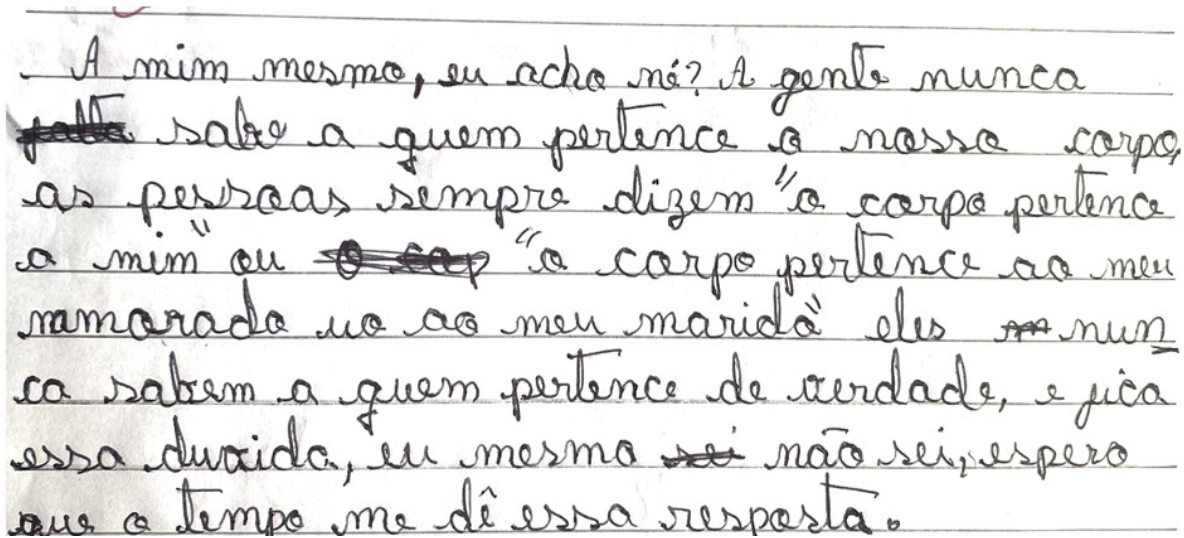 A mim mesmo, eu acho né? A gente nunca
sabe a quem pertence o nosso corpo,
as pessoas sempre dizem "o corpo pertence
a mim" ou "o corpo pertence ao meu
namorado uo ao meu marido" eles nun
ca sabem a quem pertence de verdade, e fica
essa duvida, eu mesmo não sei, espero
que o tempo me dê essa resposta.